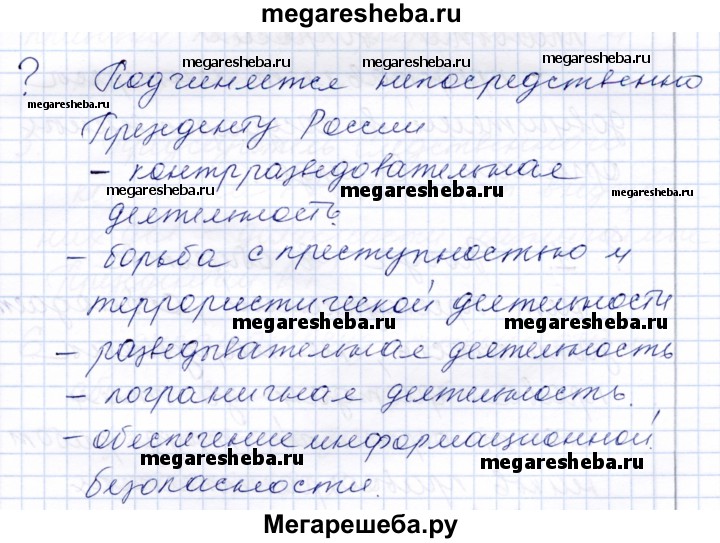 megaresheba.ru
? Подчиняется непосредственно
Президенту России
- контрразведовательная
деятельность.
- борьба с преступностью и
террористической деятельности
- разведывательная деятельность
- пограничная деятельность.
- обеспечение информационной
безопасности.
megaresheba.ru
megaresheba.ru
megaresheba.ru
megaresheba.ru
megaresheba.ru
megaresheba.ru
megaresheba.ru
megaresheba.ru
megaresheba.ru
megaresheba.ru
megaresheba.ru
Мегарешеба.ру